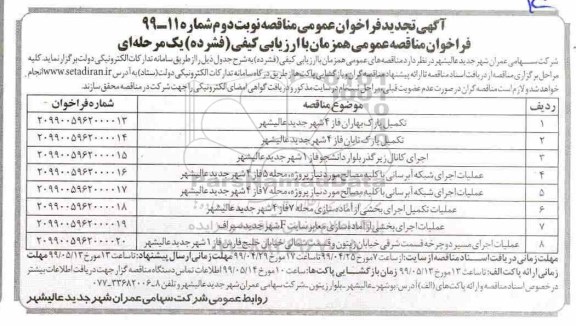 آگهی تجدید فراخوان عمومی مناقصه نوبت دوم شماره ۱۱-۹۹
فراخوان مناقصه عمومی همزمان با ارزیابی کیفی (فشرده) یک مرحله‌ای
شرکت سهامی عمران شهر جدید عالیشهر در نظر دارد مناقصه های عمومی همزمان با ارزیابی کیفی (فشرده) به شرح جدول ذیل را از طریق سامانه تدارکات الکترونیکی دولت برگزار نماید. کلیه
مراحل برگزاری مناقصه از دریافت اسناد مناقصه تا ارائه پیشنهاد مناقصه گران و بازگشایی پاکت‌ها از طریق درگاه سامانه تدارکات الکترونیکی دولت (ستاد) به آدرس www.setadiran.ir انجام
خواهد شد و لازم است مناقصه گران در صورت عدم عضویت قبلی مراحل ثبت نام در سایت مذکور و دریافت گواهی امضای الکترونیکی را جهت شرکت در مناقصه محقق سازند.
ردیف موضوع مناقصه شماره فراخوان
۱ تکمیل پارک بهاران فاز ۴ شهر جدید عالیشهر ۲۰۹۹۰۰۵۹۶۲۰۰۰۰۱۳
۲ تکمیل پارک تابان فاز ۴ شهر جدید عالیشهر ۲۰۹۹۰۰۵۹۶۲۰۰۰۰۱۴
۳ اجرای کانال زیر گذر بلوار دانشجو فاز ۱ شهر جدید عالیشهر ۲۰۹۹۰۰۵۹۶۲۰۰۰۰۱۵
۴ عملیات اجرای شبکه آبرسانی با کلیه مصالح مورد نیاز پروژه، محله ۵ فاز ۴ شهر جدید عالیشهر ۲۰۹۹۰۰۵۹۶۲۰۰۰۰۱۶
۵ عملیات اجرای شبکه آبرسانی با کلیه مصالح مورد نیاز پروژه، محله ۷ فاز ۴ شهر جدید عالیشهر ۲۰۹۹۰۰۵۹۶۲۰۰۰۰۱۷
۶ عملیات تکمیل اجرای بخشی از آماده سازی محله ۷ فاز ۴ شهر جدید عالیشهر ۲۰۹۹۰۰۵۹۶۲۰۰۰۰۱۸
۷ عملیات اجرای بخشی از آماده سازی معابر سایت F شهر جدید سیراف ۲۰۹۹۰۰۵۹۶۲۰۰۰۰۱۹
۸ عملیات اجرای مسیر دوچرخه قسمت شرقی خیابان زیتون و قسمت شمالی خیابان خلیج فارس فاز ۱ شهر جدید عالیشهر ۲۰۹۹۰۰۵۹۶۲۰۰۰۰۲۰
مهلت زمانی دریافت اسناد مناقصه از سایت: از ساعت ۷ مورخ ۹۹/۰۴/۲۵ تا ساعت ۱۷ مورخ ۹۹/۰۴/۲۹ مهلت زمانی ارسال پیشنهاد: تا ساعت ۱۳ مورخ ۹۹/۰۵/۱۳ مهلت
زمانی ارائه پاکت الف: تا ساعت ۱۳ مورخ ۹۹/۰۵/۱۳ زمان بازگشایی پاکت‌ها: مورخ ۹۹/۰۵/۱۴ اطلاعات تماس دستگاه مناقصه گزار جهت دریافت اطلاعات بیشتر
در خصوص اسناد مناقصه و ارائه پاکت‌های (الف) آدرس: بوشهر - عالیشهر - بلوار زیتون - شرکت سهامی عمران شهر جدید عالیشهر و تلفن ۸-۰۷۷-۳۳۶۸۲۰۰۶
روابط عمومی شرکت سهامی عمران شهر جدید عالیشهر